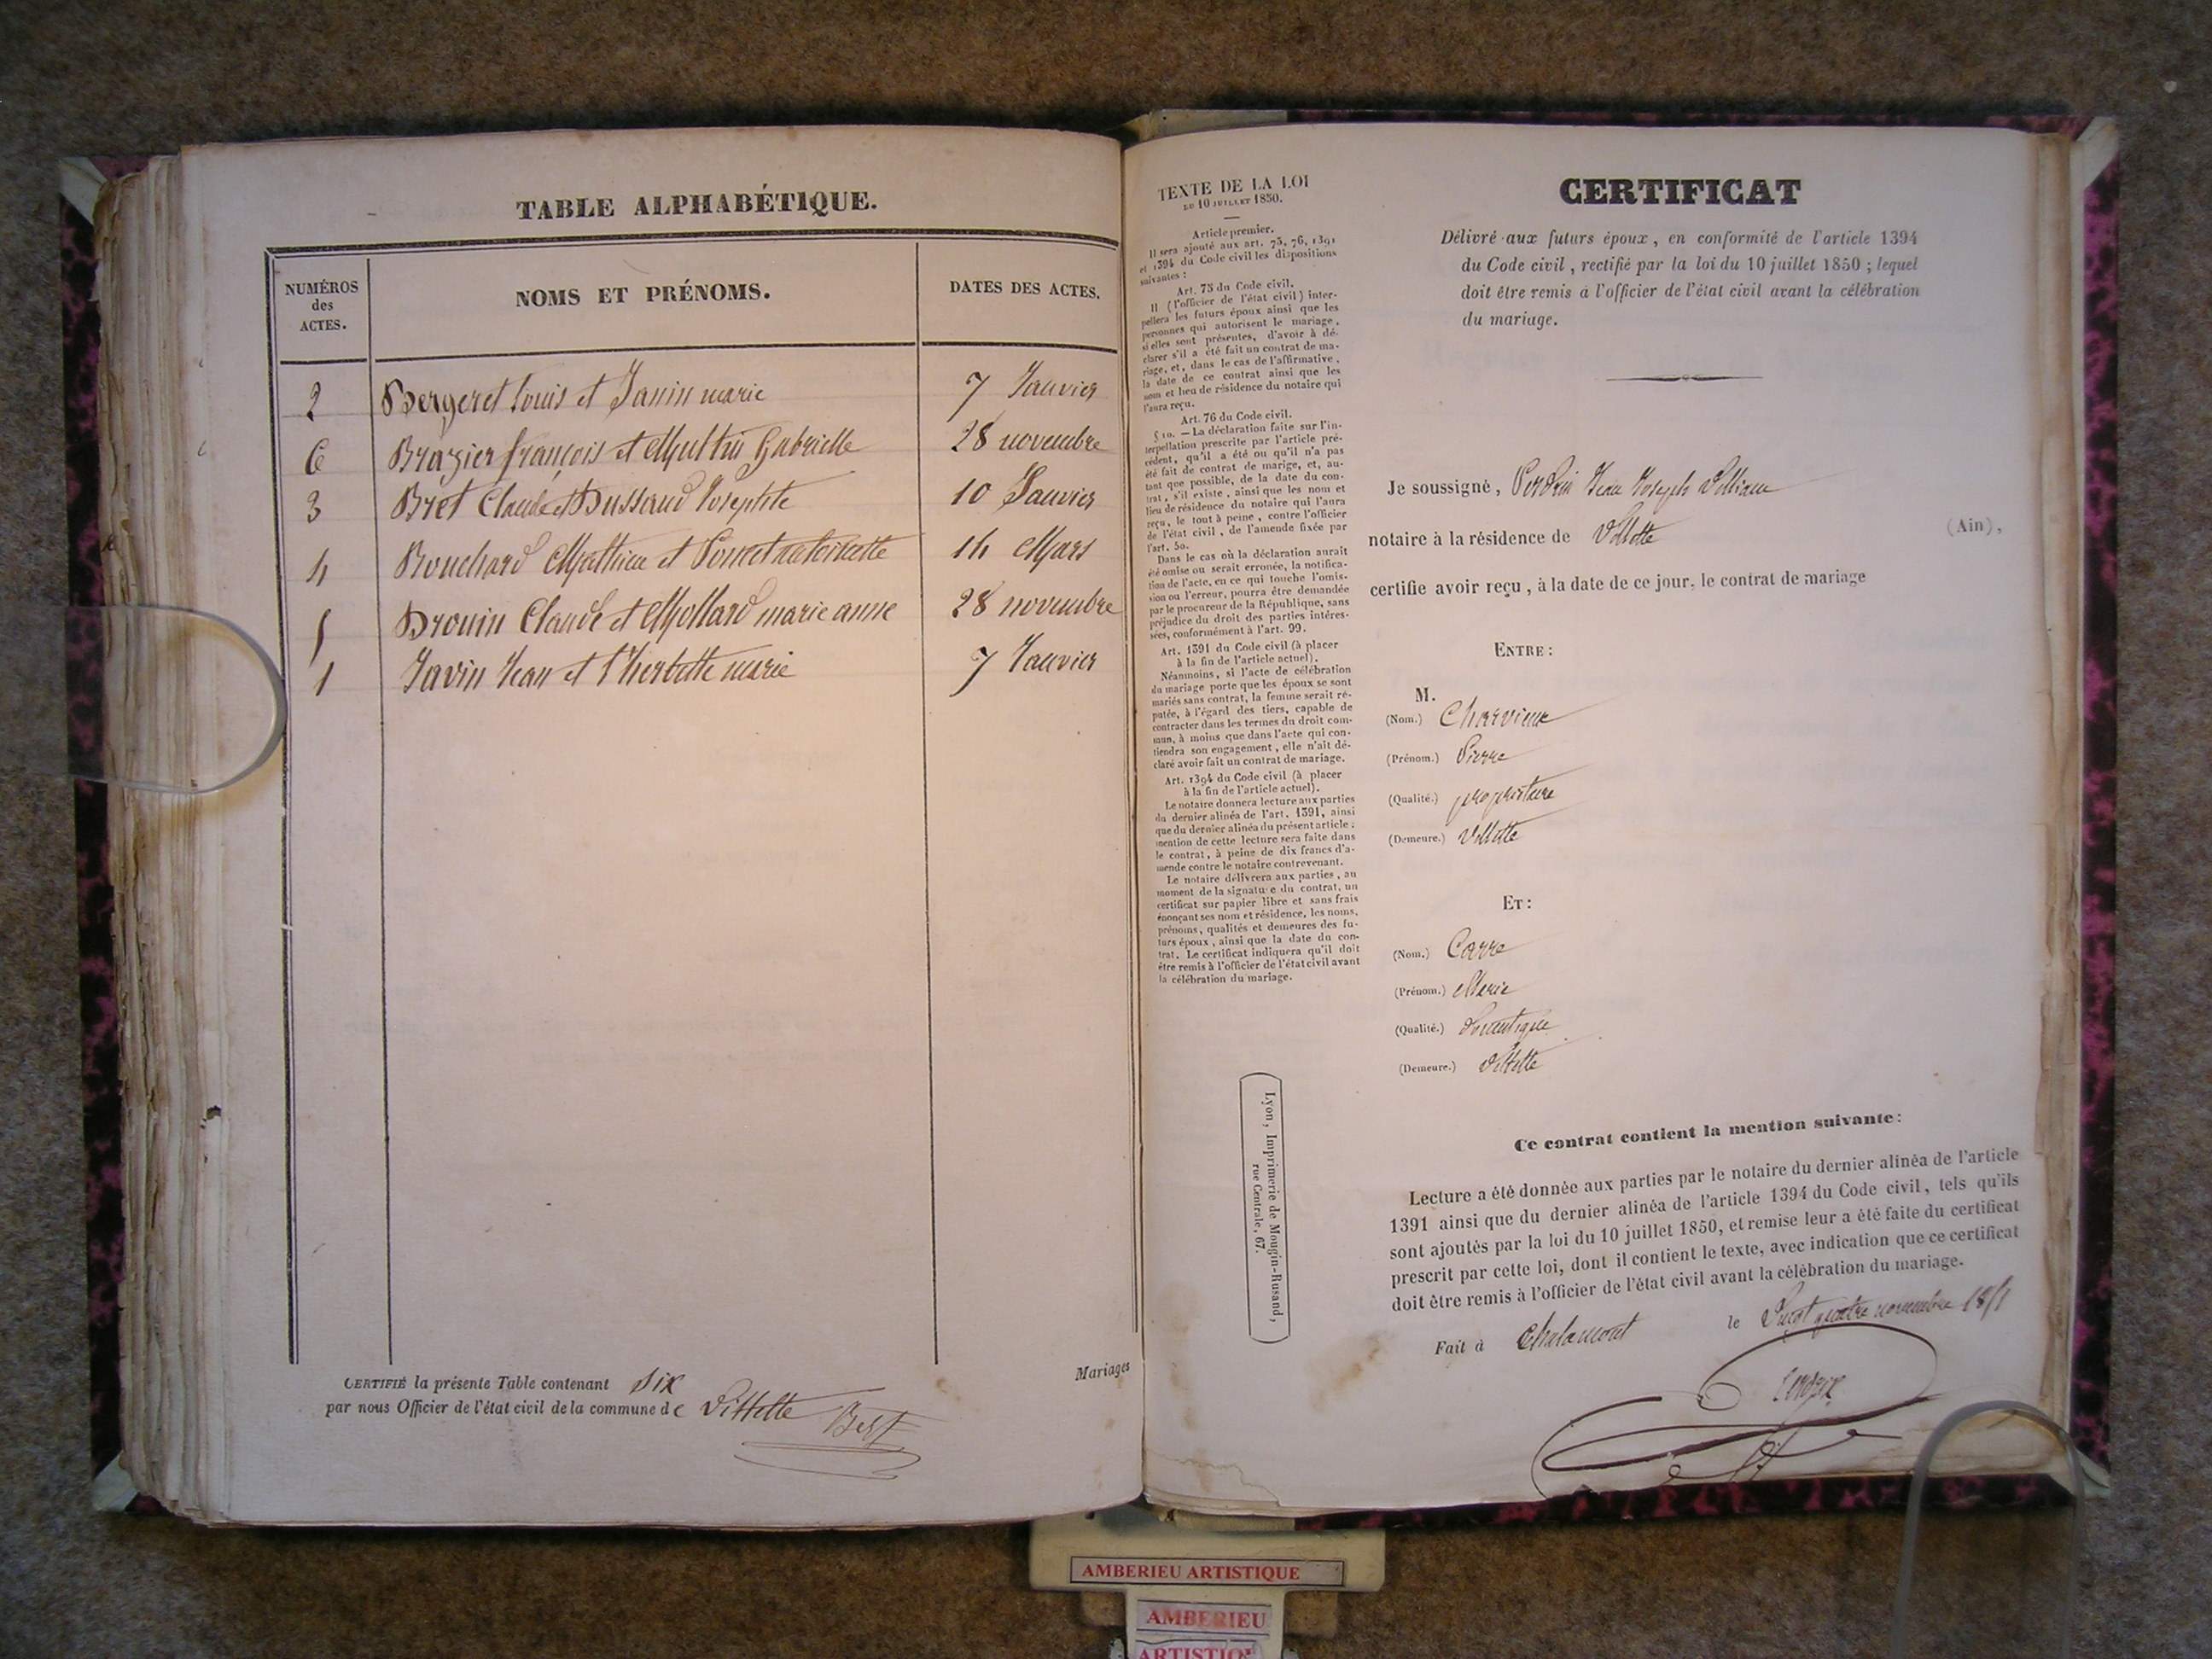 TABLE ALPHABÉTIQUE.
NUMÉROS des ACTES.
NOMS ET PRÉNOMS.
DATES DES ACTES.
2 Bergeret Louis et Janin marie 7 Janvier
6 Brazier françois et Gabrielle 28 novembre
3 Bret Claude et Dussaud Josephte 10 Janvier
4 Bouchard Mathieu et Poncet antoinette 14 Mars
5 Drouin Claude et Mollard marie anne 28 novembre
1 Javin Jean et l'herbette marie 7 Janvier
CERTIFIÉ la présente Table contenant six
Mariages
par nous Officier de l'état civil de la commune de Villette
TEXTE DE LA LOI
DU 10 JUILLET 1850.
Article premier.
Il sera ajouté aux art. 75, 76, 1391
et 1394 du Code civil les dispositions
suivantes :
Art. 75 du Code civil.
Il (l'officier de l'état civil) inter-
pellera les futurs époux ainsi que les
personnes qui autorisent le mariage,
si elles sont présentes, d'avoir à dé-
clarer s'il a été fait un contrat de ma-
riage, et, dans le cas de l'affirmative,
la date de ce contrat ainsi que les
nom et lieu de résidence du notaire qui
l'aura reçu.
Art. 76 du Code civil.
§ 10. — La déclaration faite sur l'in-
terpellation prescrite par l'article pré-
cédent, qu'il a été ou qu'il n'a pas
été fait de contrat de marige, et, au-
tant que possible, de la date du con-
trat, s'il existe, ainsi que les nom et
lieu de résidence du notaire qui l'aura
reçu, le tout à peine, contre l'officier
de l'état civil, de l'amende fixée par
l'art. 50.
Dans le cas où la déclaration aurait
été omise ou serait erronée, la notifica-
tion de l'acte, en ce qui touche l'omis-
sion ou l'erreur, pourra être demandée
par le procureur de la République, sans
préjudice du droit des parties intéres-
sées, conformément à l'art. 99.
Art. 1391 du Code civil (à placer
à la fin de l'article actuel).
Néanmoins, si l'acte de célébration
du mariage porte que les époux se sont
mariés sans contrat, la femme serait ré-
putée, à l'égard des tiers, capable de
contracter dans les termes du droit com-
mun, à moins que dans l'acte qui con-
tiendra son engagement, elle n'ait dé-
claré avoir fait un contrat de mariage.
Art. 1394 du Code civil (à placer
à la fin de l'article actuel).
Le notaire donnera lecture aux parties
du dernier alinéa de l'art. 1391, ainsi
que du dernier alinéa du présent article ;
mention de cette lecture sera faite dans
le contrat, à peine de dix francs d'a-
mende contre le notaire contrevenant.
Le notaire délivrera aux parties, au
moment de la signature du contrat, un
certificat sur papier libre et sans frais
énonçant ses nom et résidence, les noms,
prénoms, qualités et demeures des fu-
turs époux, ainsi que la date du con-
trat. Le certificat indiquera qu'il doit
être remis à l'officier de l'état civil avant
la célébration du mariage.
Lyon, Imprimerie de Mougin-Rusand,
rue Centrale, 67.
CERTIFICAT
Délivré aux futurs époux, en conformité de l'article 1394
du Code civil, rectifié par la loi du 10 juillet 1850 ; lequel
doit être remis à l'officier de l'état civil avant la célébration
du mariage.
Je soussigné, Jean Joseph
notaire à la résidence de Villette (Ain),
certifie avoir reçu, à la date de ce jour, le contrat de mariage
ENTRE :
M.
(Nom.) Charvieux
(Prénom.) Pierre
(Qualité.) propriétaire
(Demeure.) Villette
ET :
(Nom.) Carre
(Prénom.) Marie
(Qualité.) domestique
(Demeure.) Villette
Ce contrat contient la mention suivante :
Lecture a été donnée aux parties par le notaire du dernier alinéa de l'article
1391 ainsi que du dernier alinéa de l'article 1394 du Code civil, tels qu'ils
sont ajoutés par la loi du 10 juillet 1850, et remise leur a été faite du certificat
prescrit par cette loi, dont il contient le texte, avec indication que ce certificat
doit être remis à l'officier de l'état civil avant la célébration du mariage.
Fait à Chalamont le Vingt quatre novembre 1851
AMBERIEU ARTISTIQUE
AMBERIEU
ARTISTIQUE